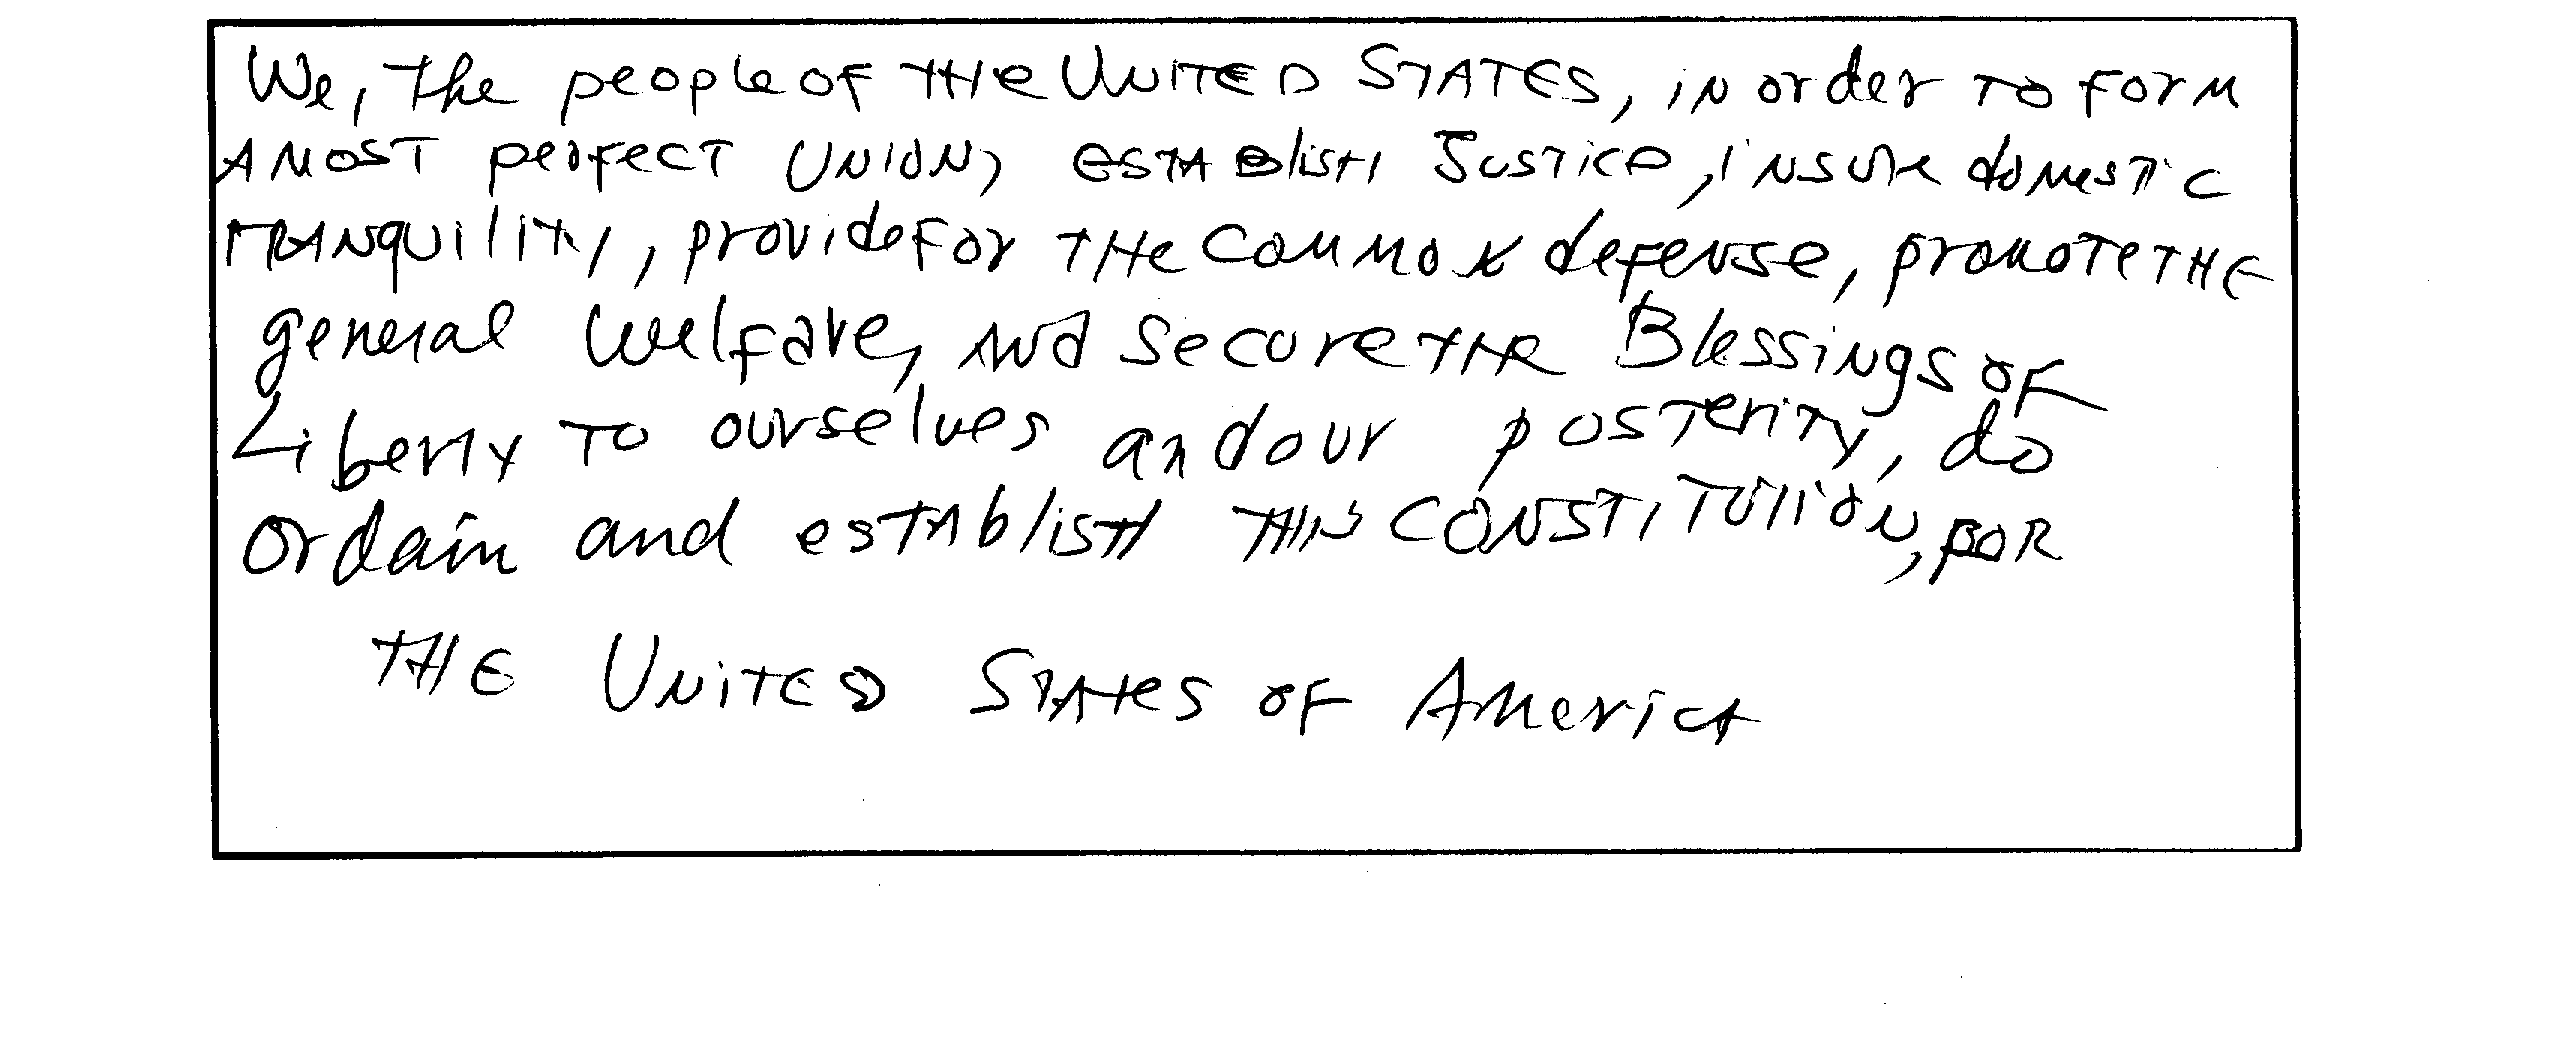 We, the people of THe UNITED STATES, in order to form
A MOST perfect UNION, ESTABlisH JUSTICE, iNsure domestic
TRANquility, provide for THe common defense, promoTe THE
general welfare, and secure THE Blessings of
Liberty To ourselves and our posTeriTy, do
ordain and esTAblisH THis CONSTITUTION, FOR
THE UNiTED STATes of America